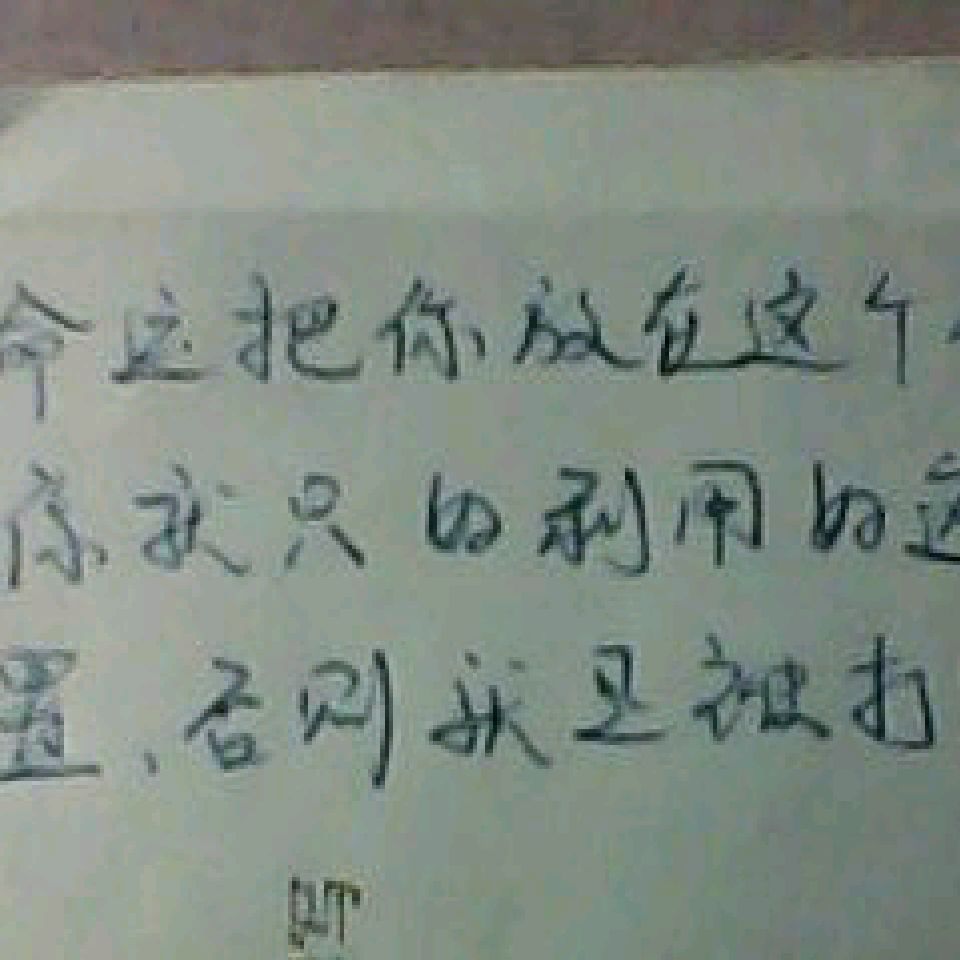 命运把你放在这个
你我只的利用的这
置，否则我是被打